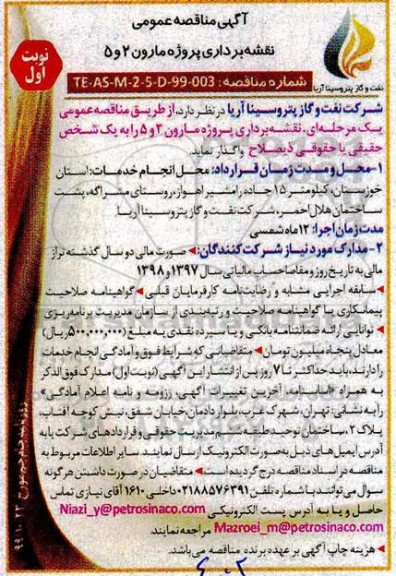 آگهی مناقصه عمومی
نقشه برداری پروژه مارون ۲ و ۵
نوبت
اول
نفت و گاز پتروسینا آریا
شماره مناقصه: TE-AS-M-2-5-D-99-003
شرکت نفت و گاز پتروسینا آریا در نظر دارد، از طریق مناقصه عمومی
یک مرحله‌ای، نقشه برداری پروژه مارون ۲ و ۵ را به یک شخص
حقیقی یا حقوقی ذیصلاح واگذار نماید.
۱-محل و مدت زمان قرارداد: محل انجام خدمات: استان
خوزستان، کیلومتر ۱۵ جاده رامشیر اهواز، روستای مشراگه، پشت
ساختمان هلال احمر، شرکت نفت و گاز پتروسینا آریا.
مدت زمان اجرا: ۱۲ ماه شمسی
۲-مدارک مورد نیاز شرکت کنندگان: صورت مالی دو سال گذشته تراز
مالی به تاریخ روز و مفاصاحساب مالیاتی سال ۱۳۹۷ و ۱۳۹۸
سابقه اجرایی مشابه و رضایت‌نامه کارفرمایان قبلی گواهینامه صلاحیت
پیمانکاری یا گواهینامه صلاحیت و رتبه‌بندی از سازمان مدیریت برنامه‌ریزی
توانایی ارائه ضمانتنامه بانکی و یا سپرده نقدی به مبلغ (۵۰۰,۰۰۰,۰۰۰ ریال)
معادل پنجاه میلیون تومان متقاضیانی که شرایط فوق و آمادگی انجام خدمات
را دارند، باید حداکثر تا ۷ روز پس از انتشار این آگهی (نوبت اول) مدارک فوق الذکر
به همراه «اساسنامه، آخرین تغییرات آگهی، رزومه و نامه اعلام آمادگی»
را به نشانی: تهران، شهرک غرب، بلوار دادمان، خیابان شفق، نبش کوچه آفتاب،
پلاک ۲، ساختمان توحید طبقه ششم مدیریت حقوقی و قراردادهای شرکت یا به
آدرس ایمیل‌های ذیل به صورت الکترونیک ارسال نمایند. سایر اطلاعات مربوط به
مناقصه در اسناد مناقصه درج گردیده است. متقاضیان در صورت داشتن هرگونه
سوال می‌توانند با شماره تلفن ۰۲۱۸۸۵۷۶۳۹۱ داخلی ۱۶۱۰ آقای نیازی تماس
حاصل و یا به آدرس پست الکترونیکی Niazi_y@petrosinaco.com
Mazroei_m@petrosinaco.com مراجعه نمایند.
هزینه چاپ آگهی بر عهده برنده مناقصه می‌باشد.